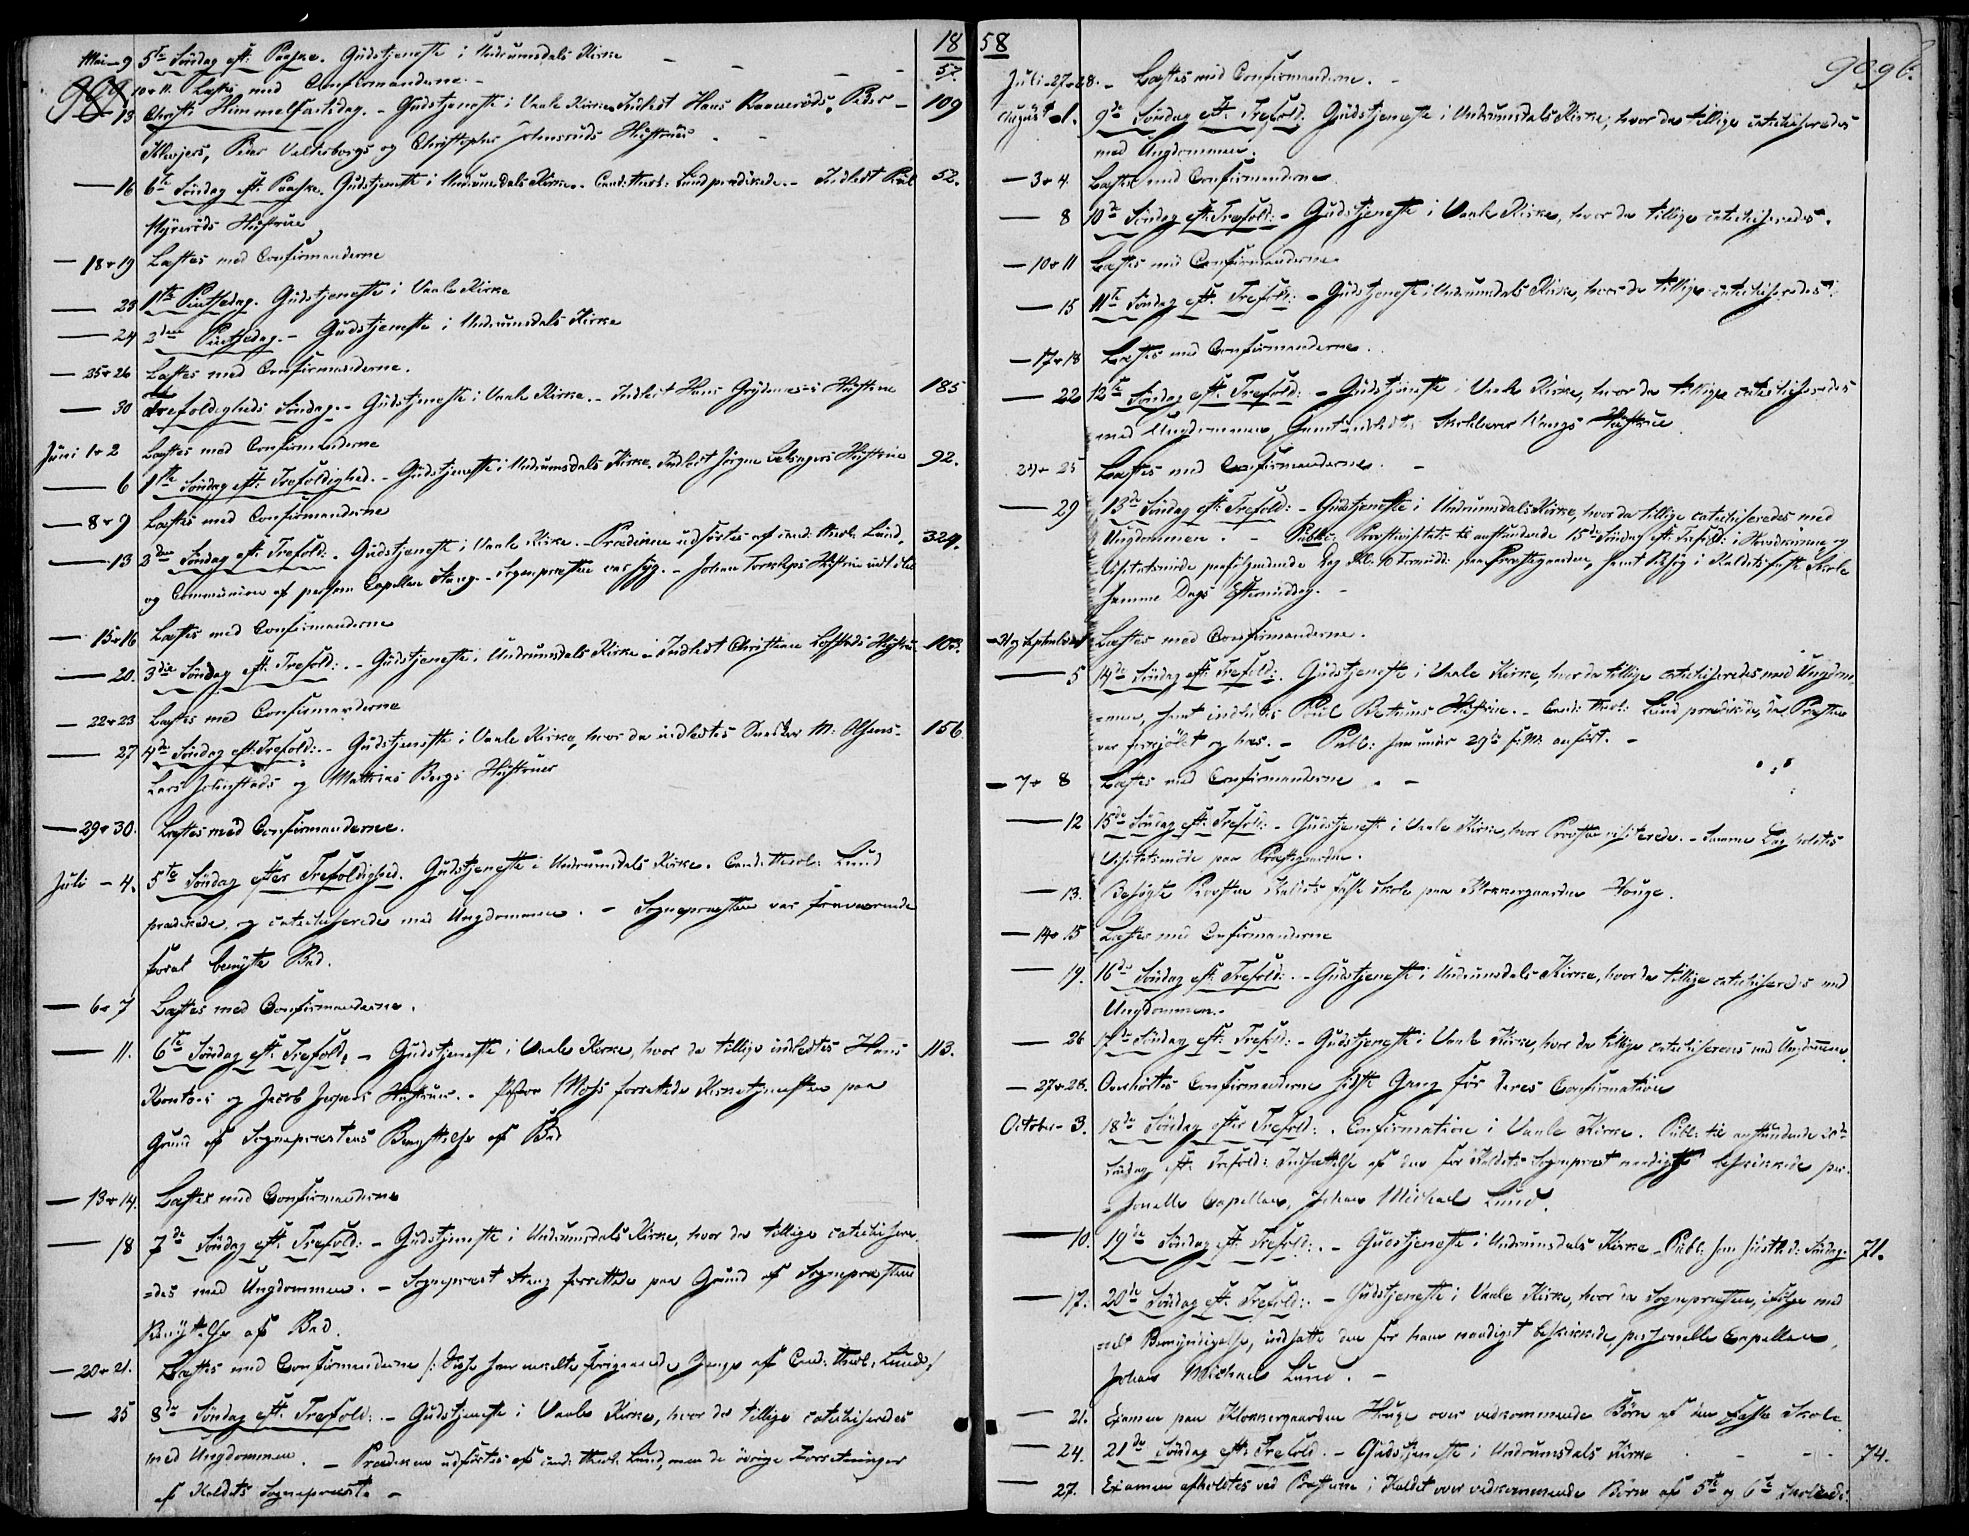 18
Mai - 9 5te Søndag eft: Paaske. Gudstjeneste i Undrumsdals Kirke - - - - 57.
10 & 11. Læstes med Confirmanderne. -
- 13 Christi Himmelfartsdag. - Gudstjeneste i Vaale Kirke. Indledt Hans Peder - 109
Peder og Christopher Hustruer. -
- 16 6te Søndag eft: Paaske. Gudstjeneste i Undrumsdals Kirke. Cand: theol: Lund prædikede. - Indledt 52.
Hustrue
- 18 & 19 Læstes med Confirmanderne
- 23 1ste Pintsedag. Gudstjeneste i Vaale Kirke
- 24 2den Pintsedag. - Gudstjeneste i Undrumsdals Kirke
- 25 & 26 Læstes med Confirmanderne.
- 30 Trefoldigheds Søndag. - Gudstjeneste i Vaale Kirke. - Indledt Hans Hustrue 185
Juni 1 & 2 Læstes med Confirmanderne
- 6 1ste Søndag eft: Trefoldighed. - Gudstjeneste i Undrumsdals Kirke. Indledt Jørgen Hustrue 92.
- 8 & 9 Læstes med Confirmanderne
- 13 2den Søndag eft: Trefold: - Gudstjeneste i Vaale Kirke. - Prædiken udførtes af cand: theol: Lund, 324.
og Communion af person: Capellan Stang. - Sognepræsten var syg. - Johan Hustrue indledt
- 15 & 16 Læstes med Confirmanderne
- 20. 3die Søndag eft: Trefold: - Gudstjeneste i Undrumsdals Kirke - Indledt Hustru 103.
- 22 & 23 Læstes med Confirmanderne
- 27 4de Søndag eft: Trefold: - Gudstjeneste i Vaale Kirke, hvor da indledtes M: Olsens - 156
Lars og Mathias Bergs Hustruer
- 29 & 30. Læstes med Confirmanderne.
Juli - 4. 5te Søndag efter Trefoldighed. Gudstjeneste i Undrumsdals Kirke. Cand: theol: Lund
prædikede, og catechiserede med Ungdommen. - Sognepræsten var fraværende
forat benytte Bad.
- 6 & 7 Læstes med Confirmanderne.
- 11. 6te Søndag eft: Trefold: - Gudstjeneste i Vaale Kirke, hvor da tillige indledtes Hans 113.
og Jacob Hustruer. - Pastor Moss forrettede Kirketjenesten paa
Grund af Sognepræstens Benyttelse af Bad
- 13 & 14. Læstes med Confirmanderne
- 18 7de Søndag eft: Trefold: - Gudstjeneste i Undrumsdals Kirke, hvor da tillige catechisere
=des med Ungdommen. - Sognepræst Stang forrettede paa Grund af Sognepræstens
Benyttelse af Bad.
- 20 & 21. Læstes med Confirmanderne /: disse som enkelte foregaaende Gange af Cand: theol: Lund :/
- 25 8de Søndag eft: Trefold: - Gudstjeneste i Vaale Kirke, hvor da tillige catechiseredes
med Ungdommen. - Prædiken udførtes af cand: theol: Lund, men de øvrige Forretninger
af Kaldets Sognepræst. -
58
9096.
Juli - 27 & 28. - Læstes med Confirmanderne. -
August - 1. 9de Søndag eft: Trefold. Gudstjeneste i Undrumsdals Kirke, hvor da tillige catechiseredes
med Ungdommen.
- 3 & 4 Læstes med Confirmanderne
- 8 10de Søndag eft: Trefold: - Gudstjeneste i Vaale Kirke, hvor da tillige catechiseredes.
- 10 & 11 Læstes med Confirmanderne.
- 15 11te Søndag eft: Trefold: - Gudstjeneste i Undrumsdals Kirke, hvor da tillige catechiseredes.
- 17 & 18 Læstes med Confirmanderne.
- 22 12te Søndag eft: Trefold: - Gudstjeneste i Vaale Kirke, hvor da tillige catechiseredes
med Ungdommen, samt indledtes Skolelærer Hustrue
24 & 25 Læstes med Confirmanderne. -
- 29 13de Søndag eft: Trefold: - Gudstjeneste i Undrumsdals Kirke, hvor da tillige catechiseredes med
Ungdommen. - Publ: Provstevisitats til anstundende 15de Søndag eft: Trefold: i Hovedkirken og
Visitatsmøde paafølgende Dag Kl: 10 Formidd: paa Præstegaarden, samt Besøg i Kaldets faste Skole
samme Dags Eftermiddag. -
- 31 og September 1 Læstes med Confirmanderne.
- 5 14de Søndag eft: Trefold: Gudstjeneste i Vaale Kirke, hvor da tillige catechiseredes med Ungdom
=men, samt indledtes Poul Hustrue. - Cand: theol: Lund prædikede, da Præsten
var forkjølet og hæs. - Publ: som under 29de f: M: anført. -
- 7 & 8 Læstes med Confirmanderne. -
- 12 15de Søndag eft: Trefold: - Gudstjeneste i Vaale Kirke, hvor Provsten visiterede. - Samme Dag holdtes
Visitatsmøde paa Præstegaarden.
- 13. Besøgte Provsten Kaldets faste Skole paa Klokkergaarden Hauge.
- 14 & 15 Læstes med Confirmanderne
- 19. 16de Søndag eft: Trefold: - Gudstjeneste i Undrumsdals Kirke, hvor da tillige catechiseredes med
Ungdommen. -
- 26 17de Søndag eft: Trefold: - Gudstjeneste i Vaale Kirke, hvor da tillige catechiseredes med Ungdommen.
- 27 & 28. Overhørtes Confirmanderne sidste Gang før deres Confirmation
October - 3. 18de Søndag efter Trefold: . Confirmation i Vaale Kirke. Publ: til anstundende 20de
Søndag eft: Trefold: Indsættelse af den for Kaldets Sognepræst naadigst beskikkede per-
=sonelle Capellan, Johan Michael Lund.
- 10. 19de Søndag eft: Trefold: . - Gudstjeneste i Undrumsdals Kirke - Publ: som sidste d: Søndag. 71.
- 17. 20de Søndag eft: Trefold: . - Gudstjeneste i Vaale Kirke, hvor da Sognepræsten, ifølge med
=delt Bemyndigelse, indsatte den for ham naadigst beskikkede personelle Capellan,
Johan Michael Lund. -
- 21. Examen paa Klokkergaarden Hauge over vedkommende Børn af den faste Skole
- 24. 21de Søndag eft: Trefold. - Gudstjeneste i Undrumsdals Kirke - - - 74.
- 27. Examen afholdtes ved Præsterne i Kaldet over vedkommende Børn af 5te og 6te